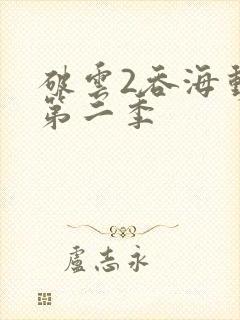 破雲2吞海動
第二季
盧志永